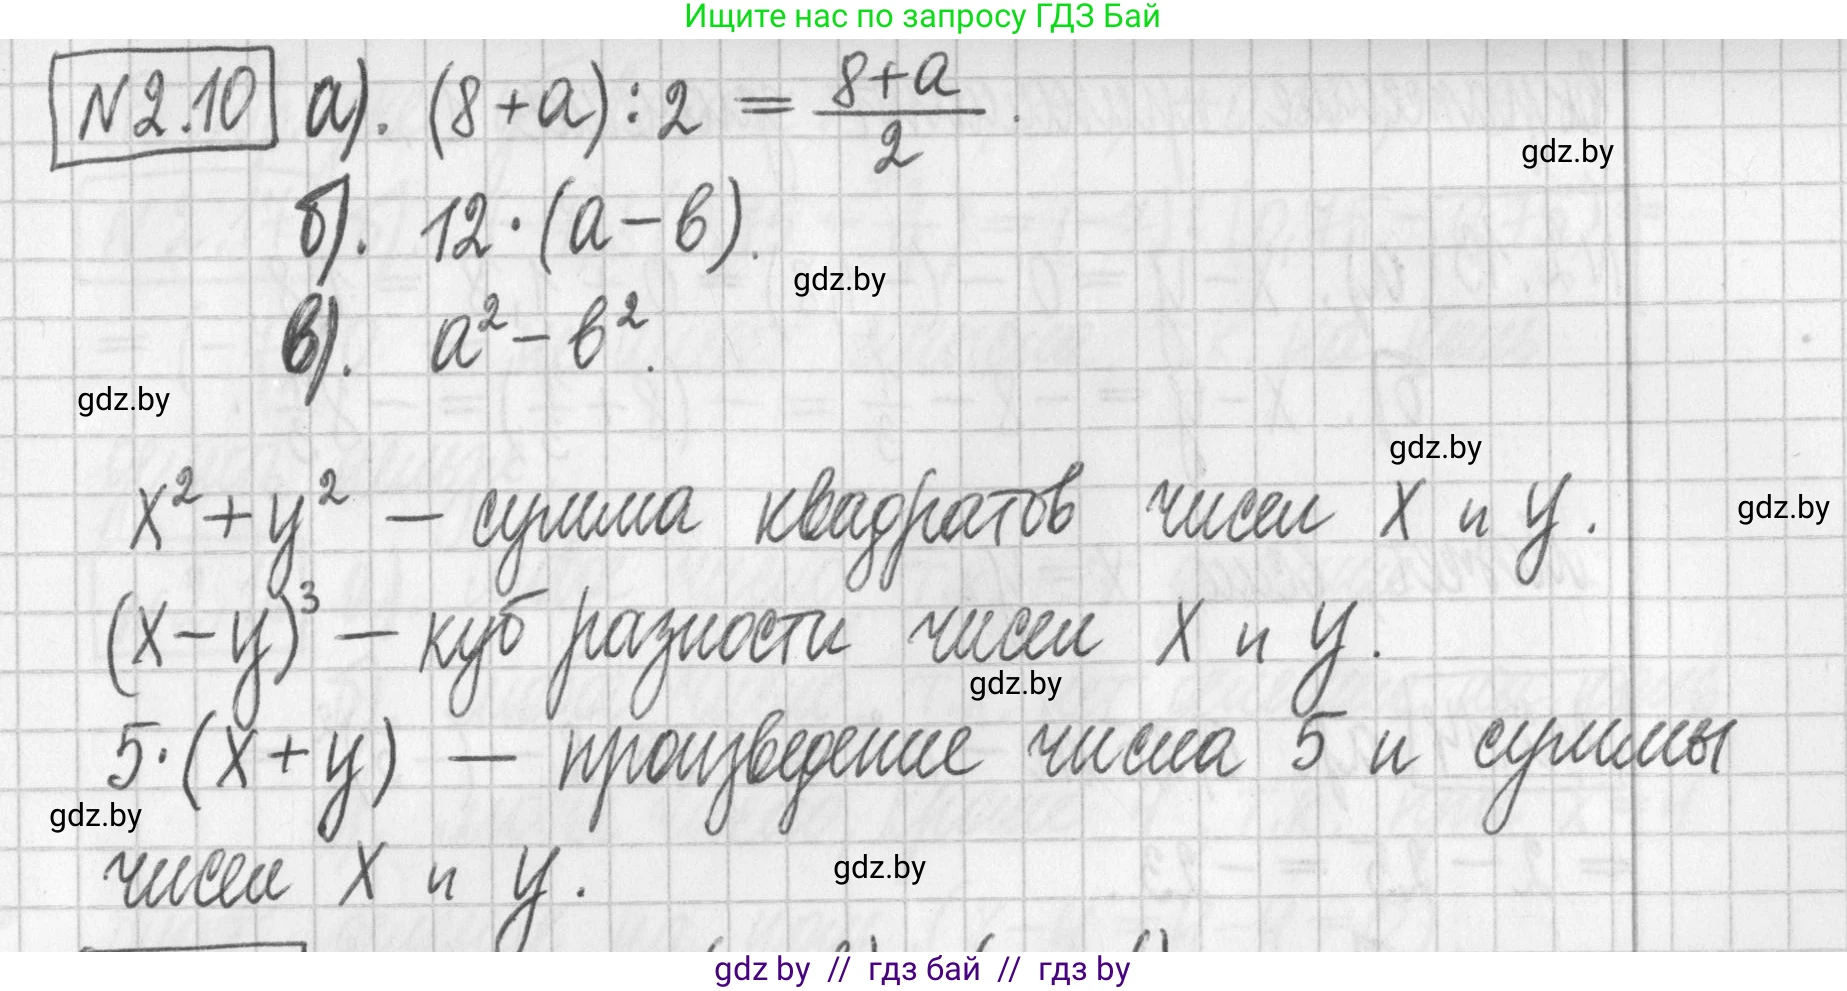 Ищите нас по запросу ГДЗ Бай
N 2.10 а). (8+a):2 = 8+a/2.
gdz.by
б). 12·(a-в).
gdz.by
в). a²-в².
gdz.by
gdz.by
x²+y² - сумма квадратов чисел x и y.
gdz.by
(x-y)³ - куб разности чисел x и y.
gdz.by
5·(x+y) - произведение числа 5 и суммы
gdz.by
чисел x и y.
gdz.by
gdz by // гдз бай // гдз by